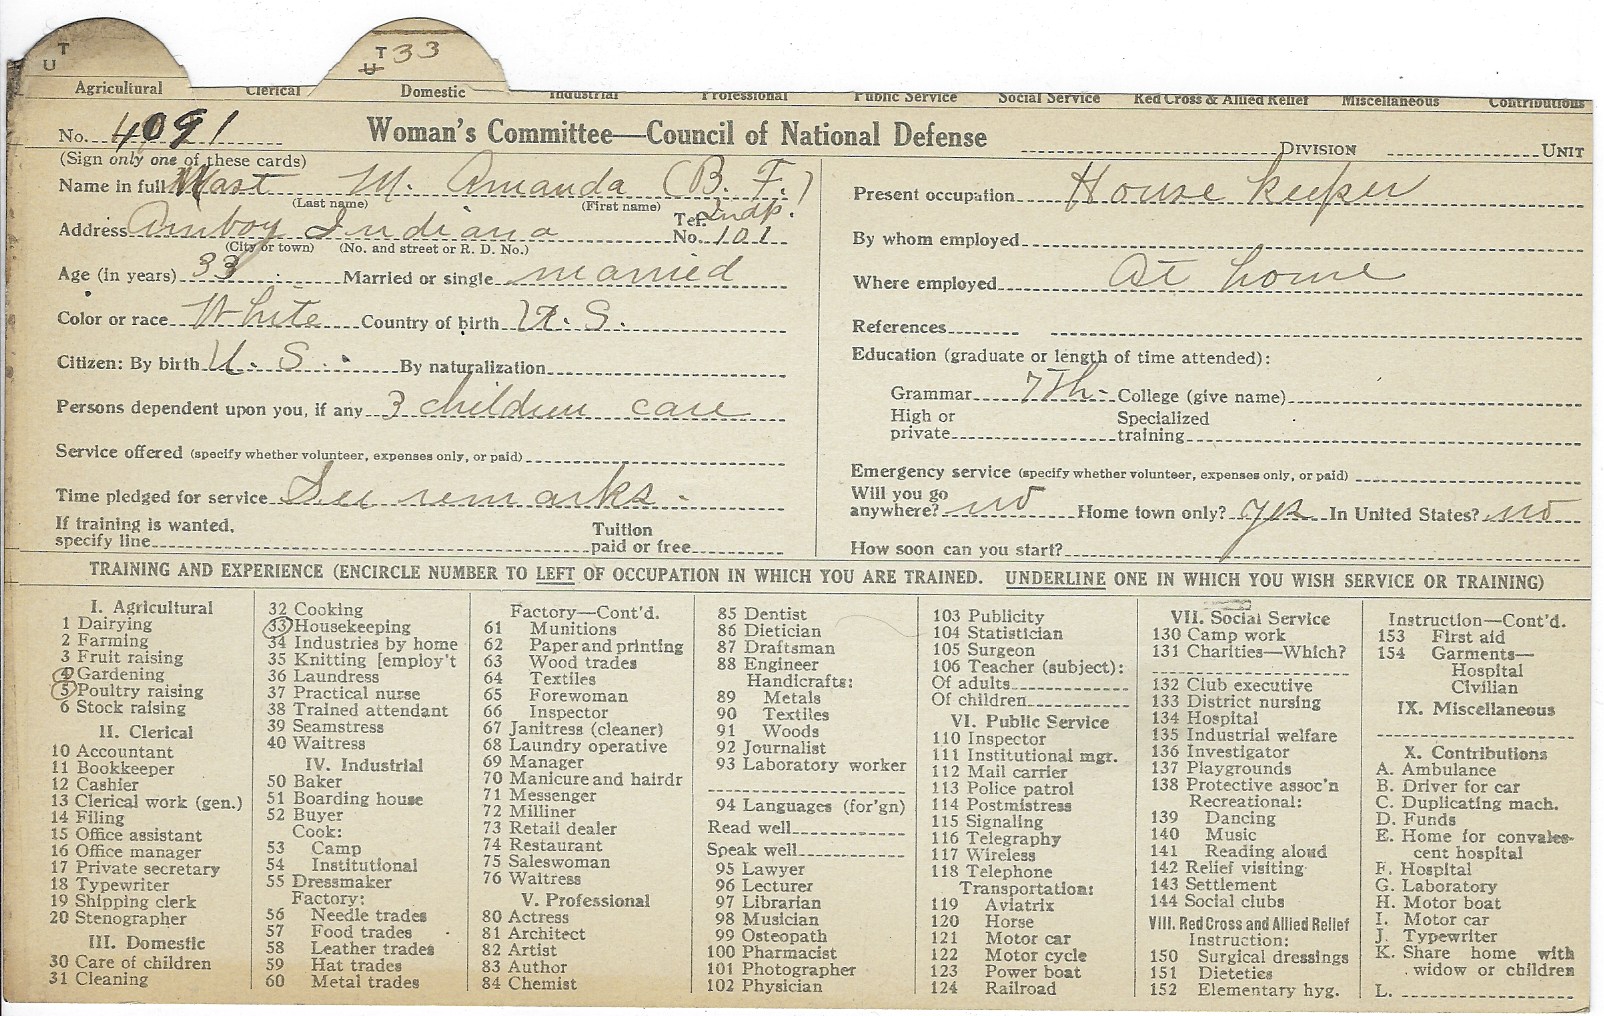 T
U
T 33
U
Agricultural Clerical Domestic Industrial Professional Public Service Social Service Red Cross & Allied Relief Miscellaneous Contributions
No. 4091 Woman's Committee—Council of National Defense DIVISION UNIT
(Sign only one of these cards)
Name in full Mast M. Amanda (B. F.)
(Last name) (First name)
Address Amboy Indiana Tel. No. Indp. 101
(City or town) (No. and street or R. D. No.)
Age (in years) 33 Married or single married
Color or race White Country of birth U. S.
Citizen: By birth U. S. By naturalization
Persons dependent upon you, if any 3 children care
Service offered (specify whether volunteer, expenses only, or paid)
Time pledged for service See remarks -
If training is wanted, specify line Tuition paid or free
Present occupation House keeper
By whom employed
Where employed At home
References
Education (graduate or length of time attended):
Grammar 7th- College (give name)
High or private Specialized training
Emergency service (specify whether volunteer, expenses only, or paid)
Will you go anywhere? no Home town only? yes In United States? no
How soon can you start?
TRAINING AND EXPERIENCE (ENCIRCLE NUMBER TO LEFT OF OCCUPATION IN WHICH YOU ARE TRAINED. UNDERLINE ONE IN WHICH YOU WISH SERVICE OR TRAINING)
I. Agricultural
1 Dairying
2 Farming
3 Fruit raising
4 Gardening
5 Poultry raising
6 Stock raising
II. Clerical
10 Accountant
11 Bookkeeper
12 Cashier
13 Clerical work (gen.)
14 Filing
15 Office assistant
16 Office manager
17 Private secretary
18 Typewriter
19 Shipping clerk
20 Stenographer
III. Domestic
30 Care of children
31 Cleaning
32 Cooking
33 Housekeeping
34 Industries by home
35 Knitting [employ't
36 Laundress
37 Practical nurse
38 Trained attendant
39 Seamstress
40 Waitress
IV. Industrial
50 Baker
51 Boarding house
52 Buyer
Cook:
53 Camp
54 Institutional
55 Dressmaker
Factory:
56 Needle trades
57 Food trades
58 Leather trades
59 Hat trades
60 Metal trades
Factory—Cont'd.
61 Munitions
62 Paper and printing
63 Wood trades
64 Textiles
65 Forewoman
66 Inspector
67 Janitress (cleaner)
68 Laundry operative
69 Manager
70 Manicure and hairdr
71 Messenger
72 Milliner
73 Retail dealer
74 Restaurant
75 Saleswoman
76 Waitress
V. Professional
80 Actress
81 Architect
82 Artist
83 Author
84 Chemist
85 Dentist
86 Dietician
87 Draftsman
88 Engineer
Handicrafts:
89 Metals
90 Textiles
91 Woods
92 Journalist
93 Laboratory worker
94 Languages (for'gn)
Read well
Speak well
95 Lawyer
96 Lecturer
97 Librarian
98 Musician
99 Osteopath
100 Pharmacist
101 Photographer
102 Physician
103 Publicity
104 Statistician
105 Surgeon
106 Teacher (subject):
Of adults
Of children
VI. Public Service
110 Inspector
111 Institutional mgr.
112 Mail carrier
113 Police patrol
114 Postmistress
115 Signaling
116 Telegraphy
117 Wireless
118 Telephone
Transportation:
119 Aviatrix
120 Horse
121 Motor car
122 Motor cycle
123 Power boat
124 Railroad
VII. Social Service
130 Camp work
131 Charities—Which?
132 Club executive
133 District nursing
134 Hospital
135 Industrial welfare
136 Investigator
137 Playgrounds
138 Protective assoc'n
Recreational:
139 Dancing
140 Music
141 Reading aloud
142 Relief visiting
143 Settlement
144 Social clubs
VIII. Red Cross and Allied Relief
Instruction:
150 Surgical dressings
151 Dietetics
152 Elementary hyg.
Instruction—Cont'd.
153 First aid
154 Garments—
Hospital
Civilian
IX. Miscellaneous
X. Contributions
A. Ambulance
B. Driver for car
C. Duplicating mach.
D. Funds
E. Home for convales-
cent hospital
F. Hospital
G. Laboratory
H. Motor boat
I. Motor car
J. Typewriter
K. Share home with
widow or children
L.